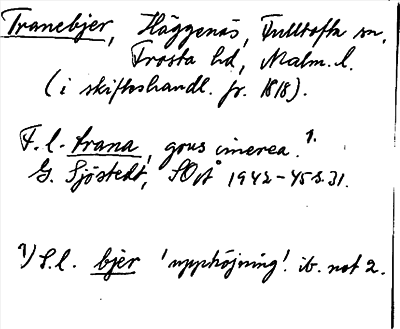 Tranebjer, Häggenäs, Fulltofta sn,
Frosta hd, Malm. l.
(i skifteshandl. fr. 1818).
F. l. trana, grus cinerea. 1.
G. Sjöstedt, SOÅ 1942-45 s. 31.
1) S. l. bjer 'upphöjning'. ib. not 2.